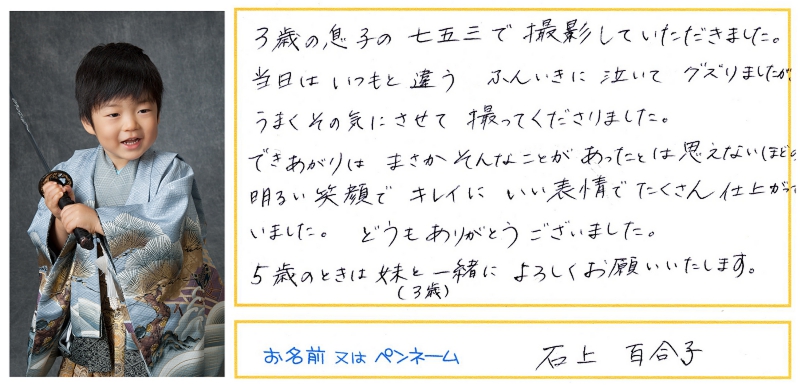 3歳の息子の 七五三で 撮影していただきました。
当日は いつもと 違う ふんいきに 泣いて グズりましたが、
うまくその気にさせて 撮ってくださりました。
できあがりは まさか そんなことが あったとは 思えないほどの
明るい 笑顔で キレイに いい表情で たくさん 仕上がって
いました。 どうも ありがとう ございました。
5歳のときは 妹と 一緒に よろしくお願いいたします。
(3歳)
お名前 又は ペンネーム 石上 百合子